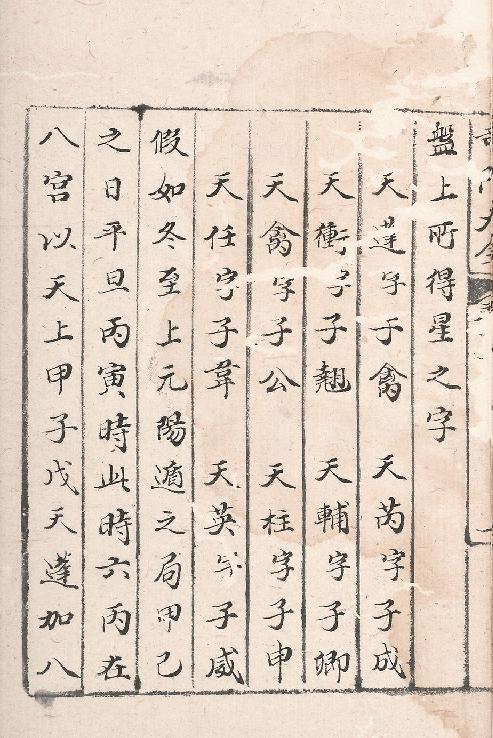 盤上所得星之字
天蓬字子禽　天芮字子成
天衝字子翹　天輔字子卿
天禽字子公　天柱字子申
天任字子韋　天英字子威
假如冬至上元陽遁之局甲己
之日平旦丙寅時此時六丙在
八宮以天上甲子戊天蓬加八